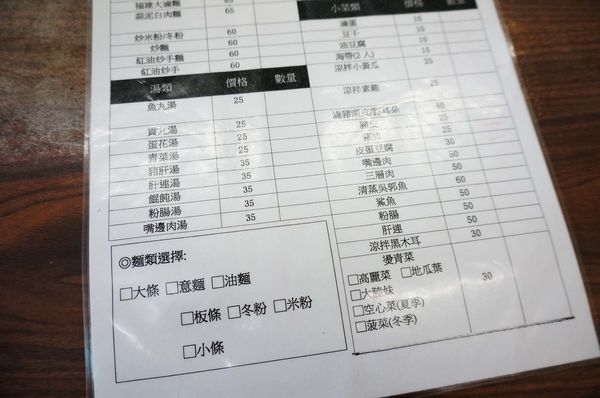 福建大滷麵
蒜泥白肉麵 65
炒米粉/冬粉 60
炒麵 60
紅油炒手麵 60
紅油炒手 60
湯類 價格 數量
魚丸湯 25
貢丸湯 25
蛋花湯 25
青菜湯 25
豬肝湯 35
肝連湯 35
餛飩湯 35
粉腸湯 35
嘴邊肉湯 35
◎麵類選擇:
□大條 □意麵 □油麵
□板條 □冬粉 □米粉
□小條
小菜類 價格 數量
滷蛋 10
豆干 10
油豆腐 10
海帶(2人) 15
涼拌小黃瓜 25
涼拌素雞 25
滷豬頭皮 耳朵 40
豬皮 25
25
皮蛋豆腐 30
嘴邊肉 50
三層肉 50
清蒸吳郭魚 60
鯊魚 50
粉腸 50
肝連 50
涼拌黑木耳 30
燙青菜
□高麗菜 □地瓜葉
□大陸妹 30
□空心菜(夏季)
□菠菜(冬季)